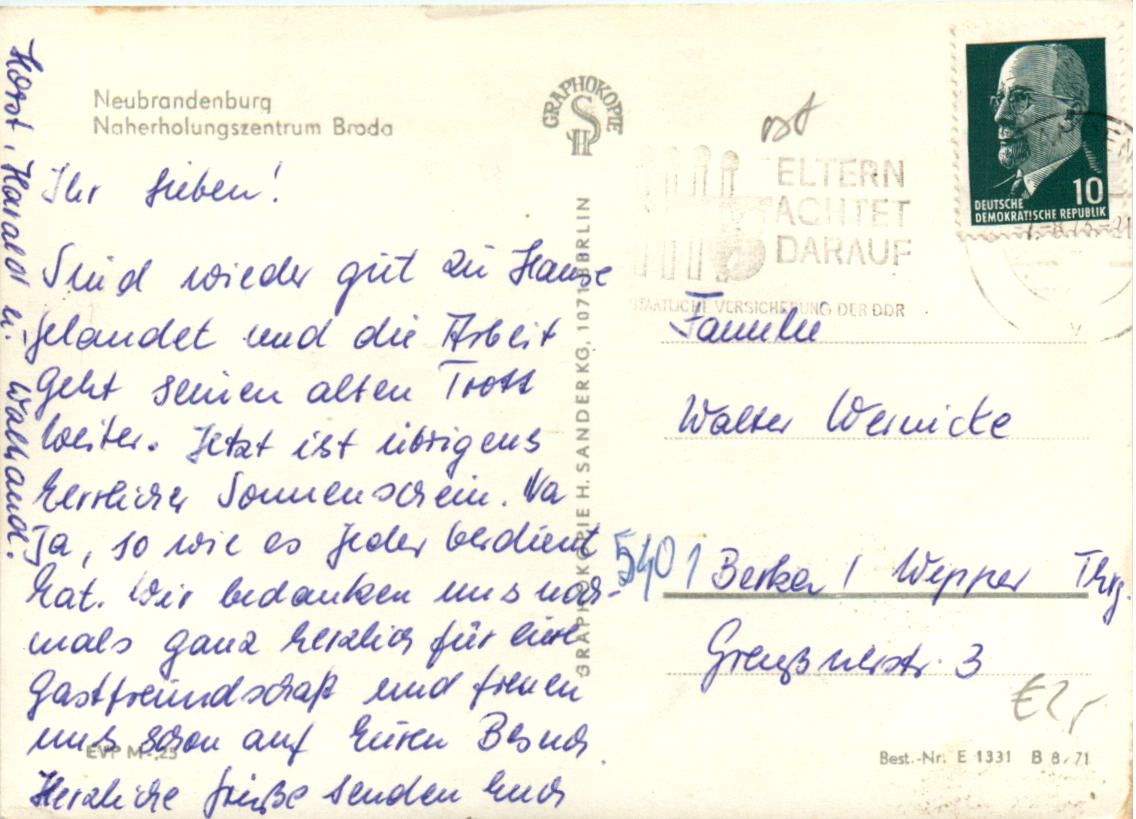 Neubrandenburg
Naherholungszentrum Broda
GRAPHOKOPIE
HS
Ihr Lieben!
Sind wieder gut zu Hause
gelandet und die Arbeit
geht seinen alten Trott
weiter. Jetzt ist übrigens
herrlicher Sonnenschein. Na
Ja, so wie es jeder verdient
hat. Wir bedanken uns noch-
mals ganz herzlich für eure
Gastfreundschaft und freuen
uns schon auf Euren Besuch.
Herzliche Grüße senden Euch
Horst, Harald u. Waltraud.
EVP M -,25
GRAPHOKOPIE H. SANDER KG, 1071 BERLIN
ELTERN
ACHTET
DARAUF
STAATLICHE VERSICHERUNG DER DDR
10
DEUTSCHE
DEMOKRATISCHE REPUBLIK
Familie
Walter Wernicke
5401 Berka / Wipper Thrg.
3
€2,-
Best.-Nr. E 1331 B 8/71